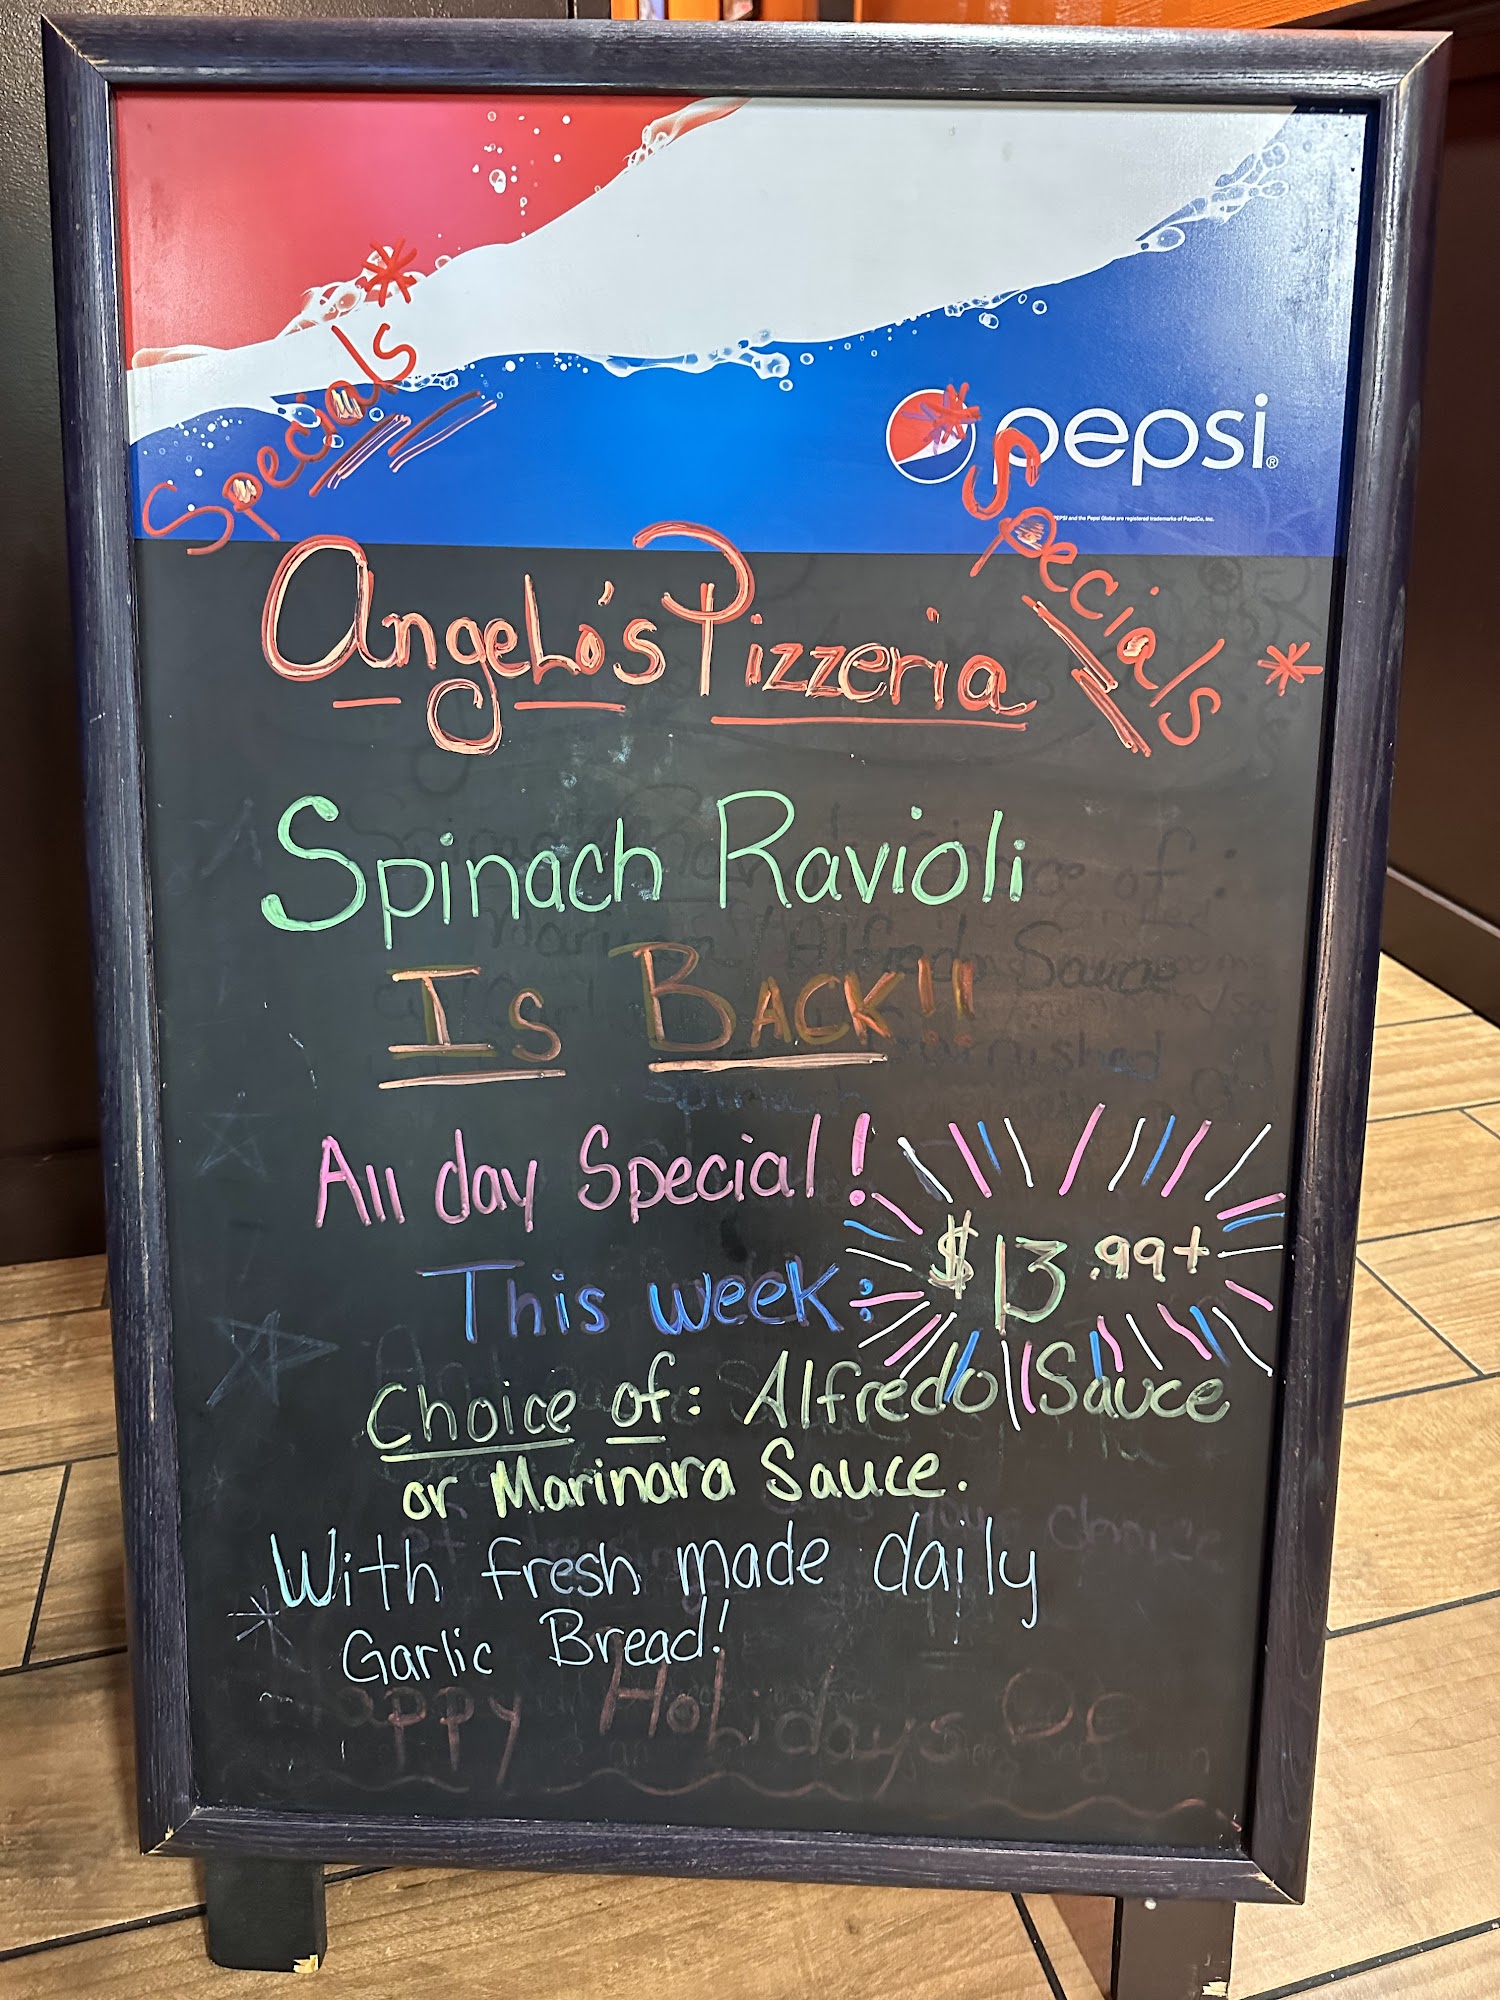 Specials *
pepsi®
PEPSI and the Pepsi Globe are registered trademarks of PepsiCo, Inc.
* Specials *
Angelo's Pizzeria
Spinach Ravioli
Is Back!!
All day Special!
This week: $13.99+
Choice of: Alfredo Sauce
or Marinara Sauce.
With fresh made daily
Garlic Bread!
Happy Holidays